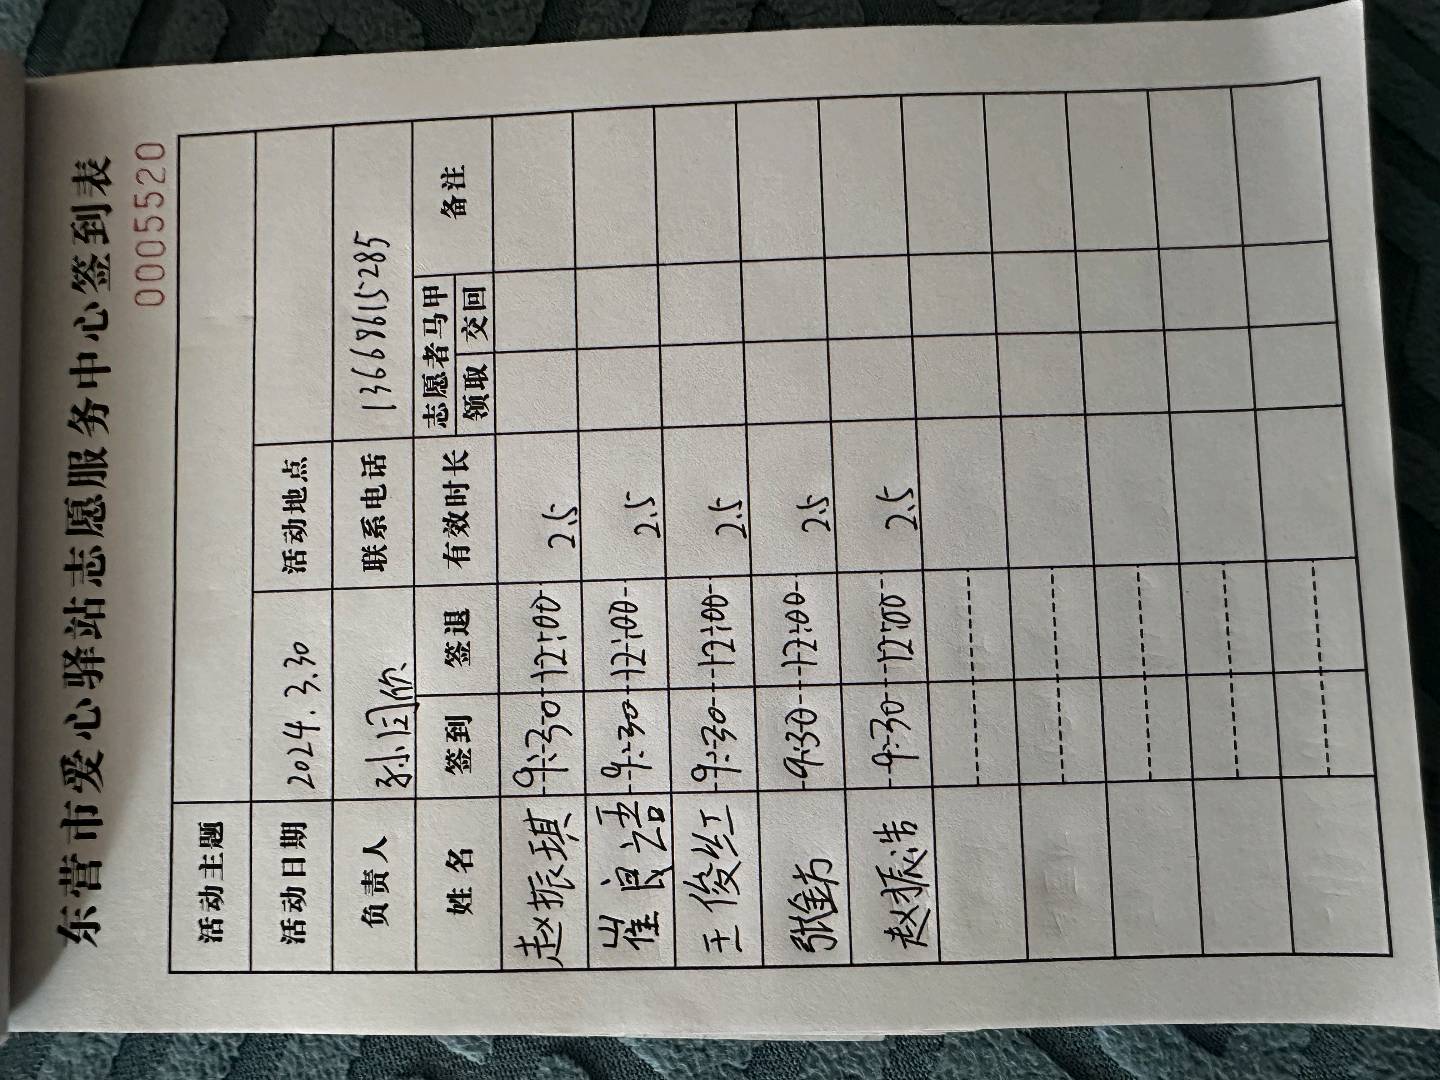 东营市爱心驿站志愿服务中心签到表
0005520
活动主题
活动日期 2024.3.30 活动地点
负责人 联系电话 13668615285
姓名 签到 签退 有效时长 志愿者马甲 备注
领取 交回
赵振琪 9:30 12:00 2.5
崔良语 9:30 12:00 2.5
王俊红 9:30 12:00 2.5
张鈁 9:30 12:00 2.5
赵振浩 9:30 12:00 2.5